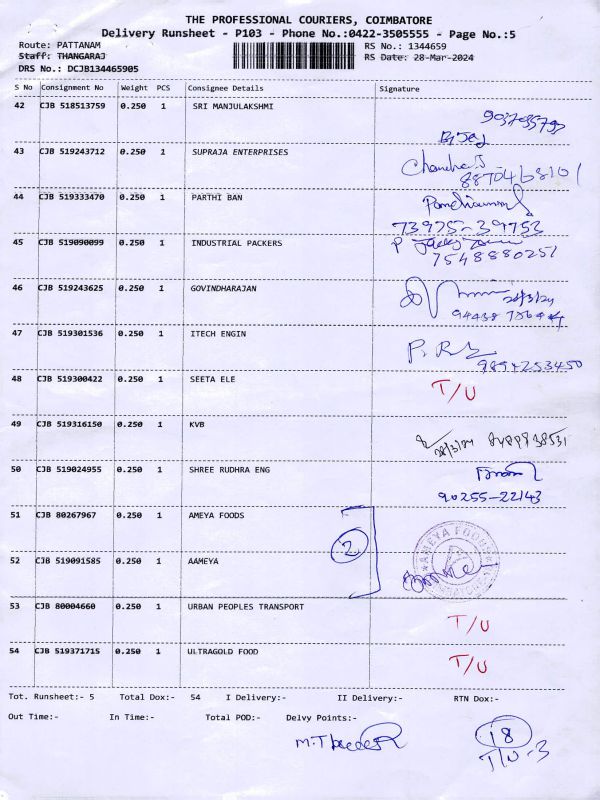 THE PROFESSIONAL COURIERS, COIMBATORE
Delivery Runsheet - P103 - Phone No.:0422-3505555 - Page No.:5
Route: PATTANAM RS No.: 1344659
Staff: THANGARAJ RS Date: 28-Mar-2024
DRS No.: DCJB134465905
S No Consignment No Weight PCS Consignee Details Signature
42 CJB 518513759 0.250 1 SRI MANJULAKSHMI
43 CJB 519243712 0.250 1 SUPRAJA ENTERPRISES
8870468101
44 CJB 519333470 0.250 1 PARTHI BAN
73975-39753
45 CJB 519090099 0.250 1 INDUSTRIAL PACKERS
7548880251
46 CJB 519243625 0.250 1 GOVINDHARAJAN
28/3/24
47 CJB 519301536 0.250 1 ITECH ENGIN
9894253450
48 CJB 519300422 0.250 1 SEETA ELE T/U
49 CJB 519316150 0.250 1 KVB
28/3/24
50 CJB 519024955 0.250 1 SHREE RUDHRA ENG
90255-22143
51 CJB 80267967 0.250 1 AMEYA FOODS
2
AMEYA FOODS
52 CJB 519091585 0.250 1 AAMEYA
53 CJB 80004660 0.250 1 URBAN PEOPLES TRANSPORT T/U
54 CJB 519371715 0.250 1 ULTRAGOLD FOOD T/U
Tot. Runsheet:- 5 Total Dox:- 54 I Delivery:- II Delivery:- RTN Dox:-
Out Time:- In Time:- Total POD:- Delvy Points:-
18
T/U-3